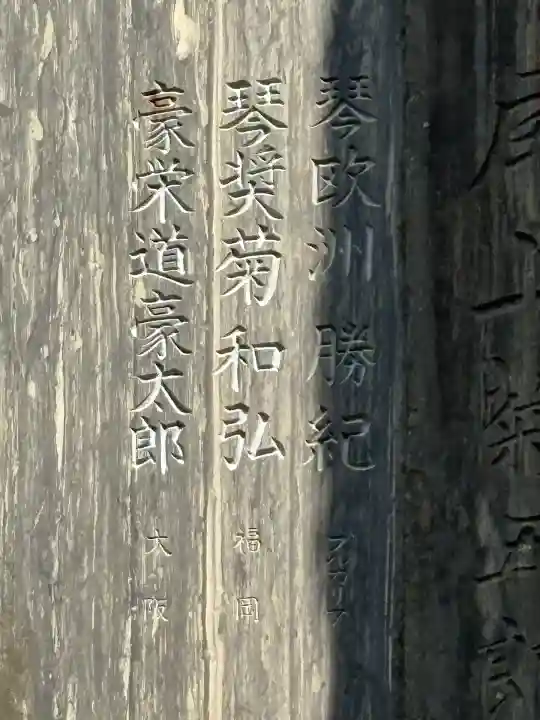 琴欧洲 勝紀 ブルガリア
琴奨菊 和弘 福岡
豪栄道 豪太郎 大阪